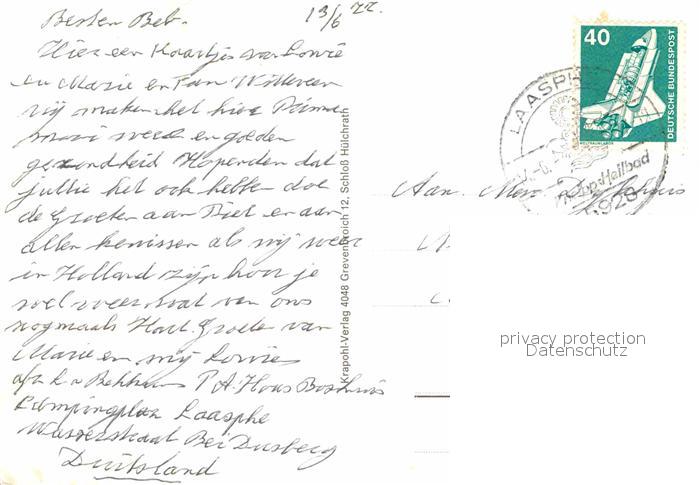 Besten Beb.
13/6 77.
Hier een Kaartje van Lowie
en Marie en Fam Witteveen
wij maken het hier Prima
mooi weer en goeden
gezondheid Hopende dat
jullie het ook hebben doe
de Groeten aan Piet en aan
allen kenissen als wij weer
in Holland zijn hoor je
wel weer wat van ons
nogmaals Hart. Groeten van
Marie en mij Lowie
P A. Haus Boshuis
Campingplatz Laasphe
Wasserstraat Bei Dusberg
Duitsland
Krapohl-Verlag 4048 Grevenbroich 12, Schloß Hülchrath
40
DEUTSCHE BUNDESPOST
WELTRAUMLABOR
LAASPHE
Kneipp-Heilbad
5928
Aan. Mevr.
privacy protection
Datenschutz